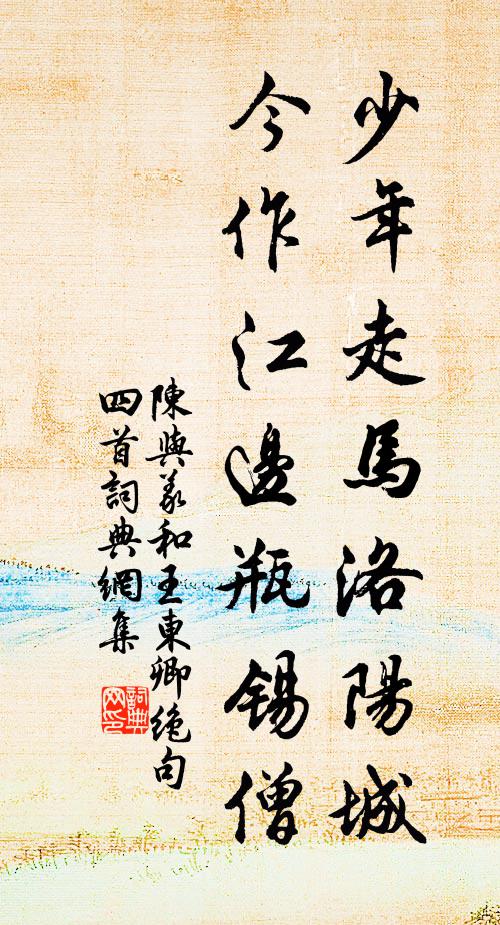 少年走馬洛陽城
今作江邊瓶錫僧
陳與義和王東卿絕句
四首詞典網集
詞典
网印